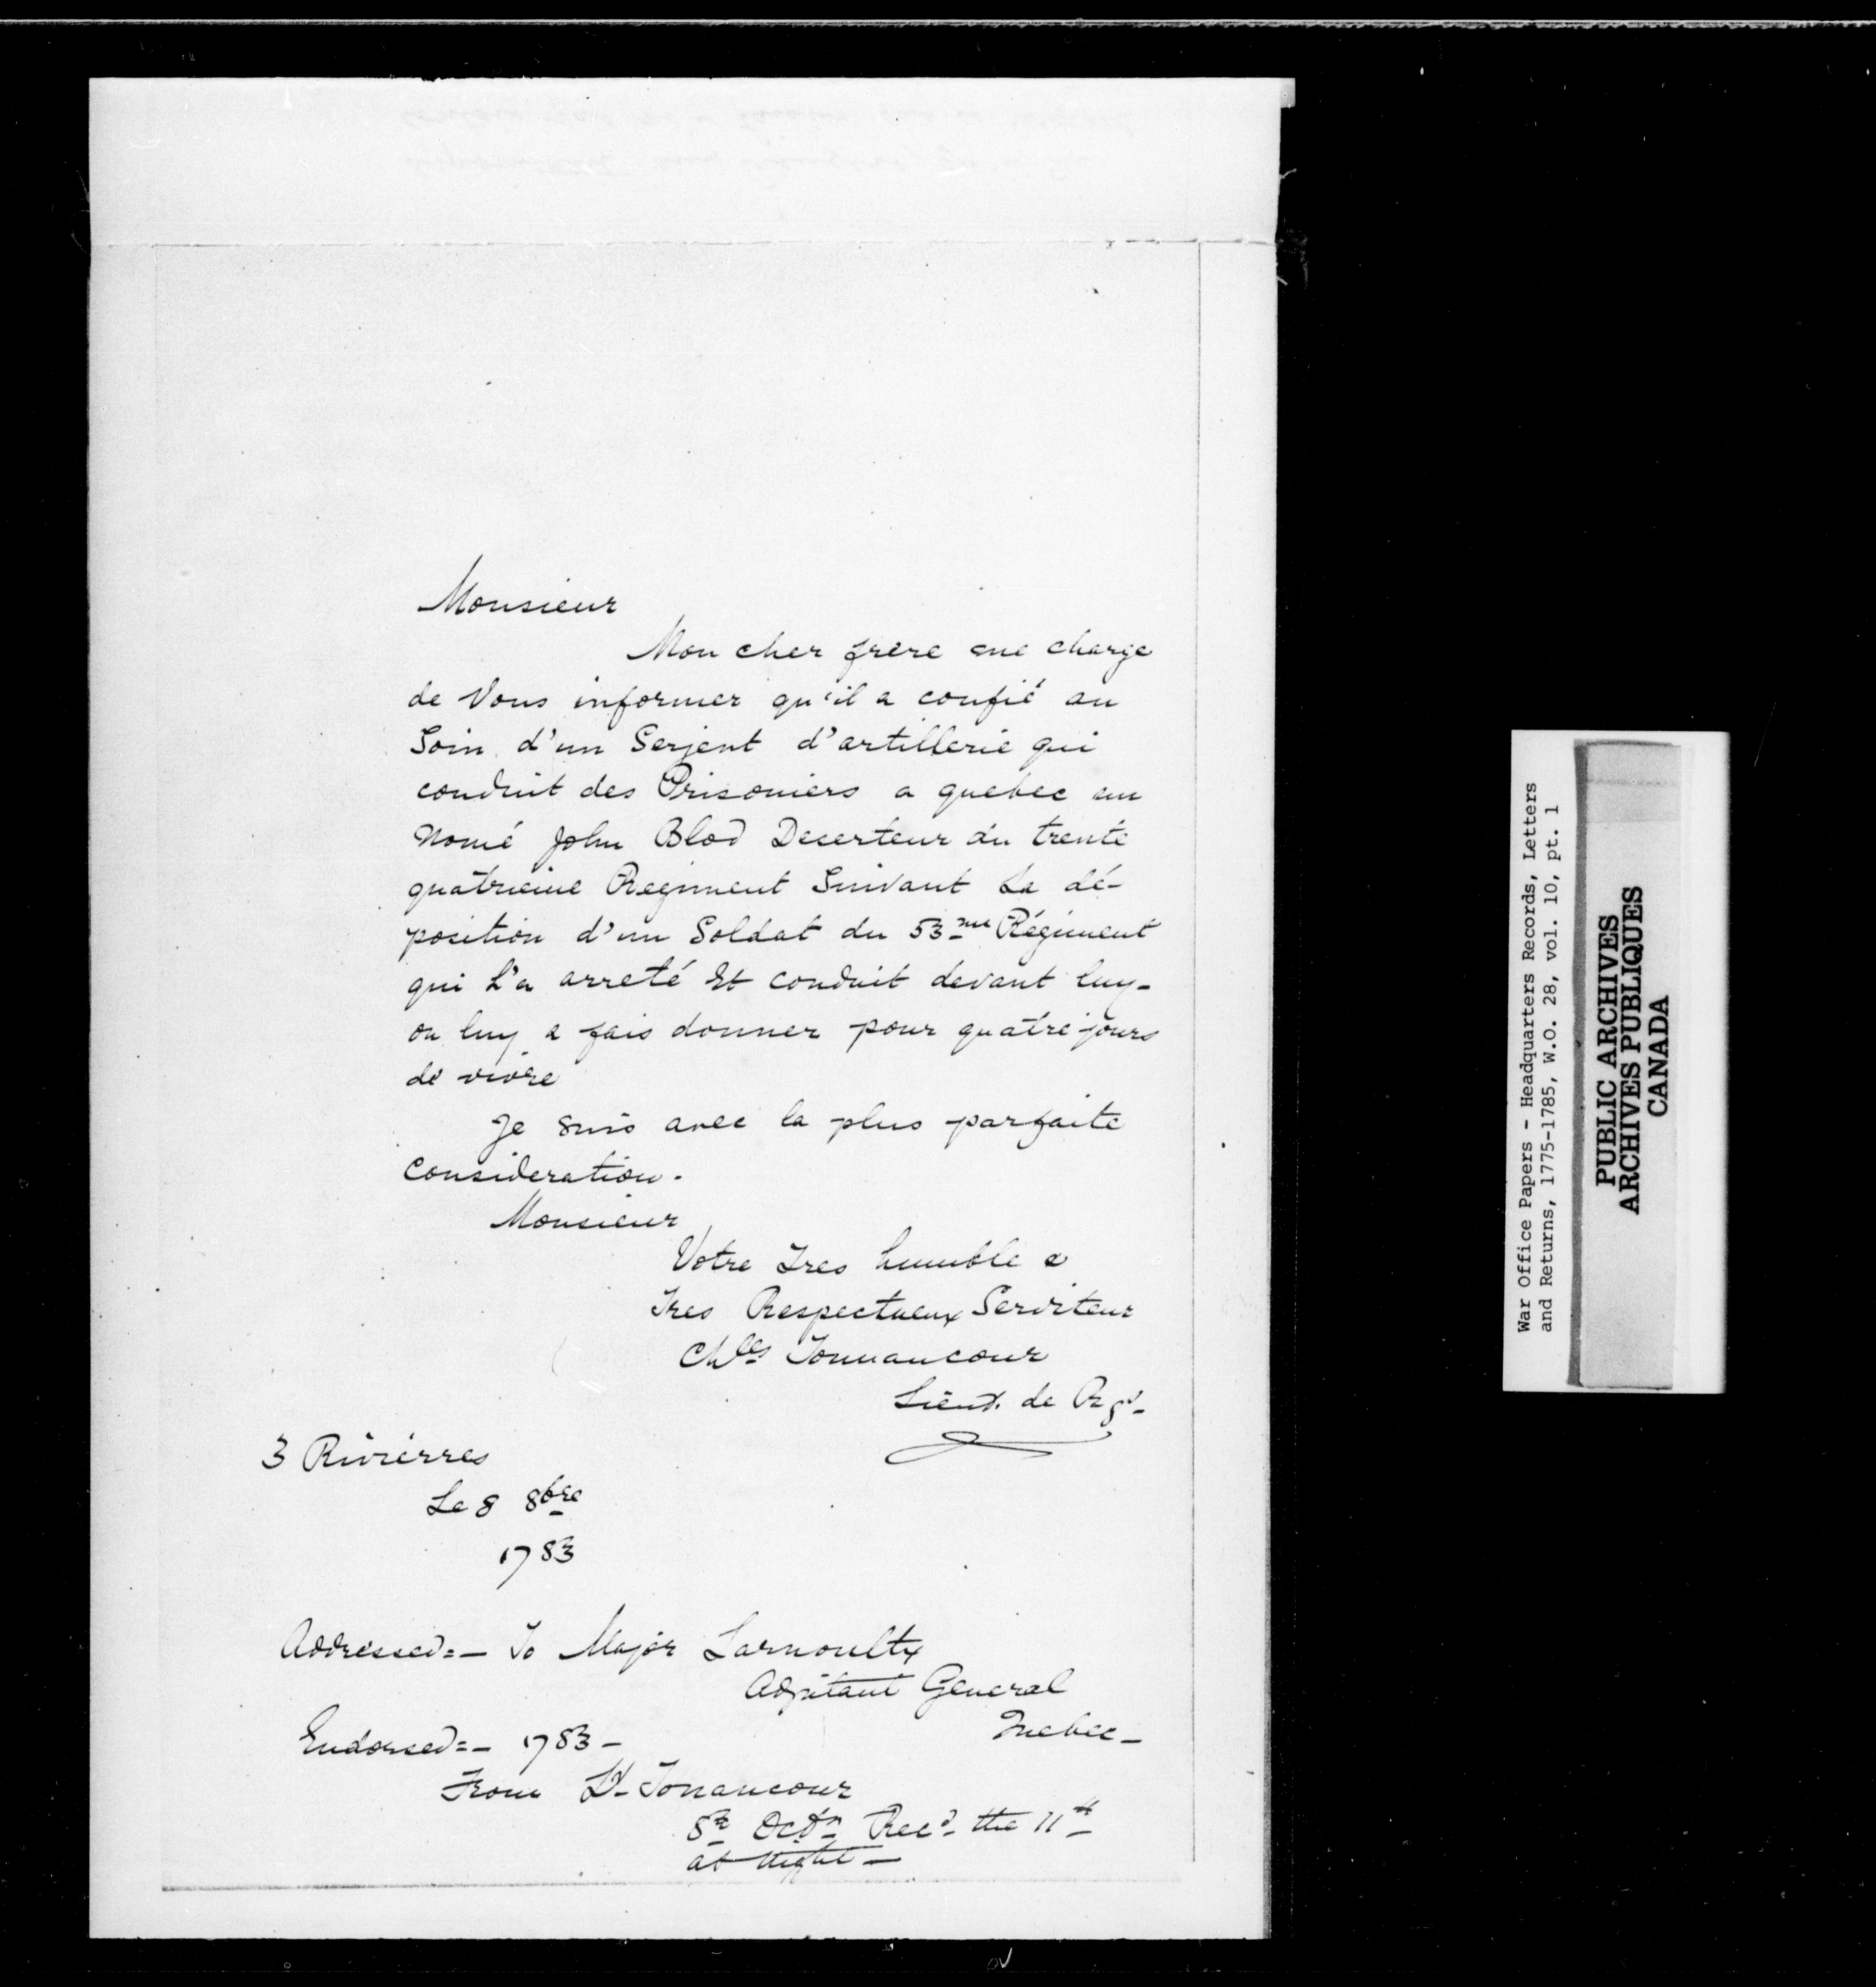 Monsieur
Mon cher frere me charge
de Vous informer qu'il a confié au
Soin d'un Serjent d'artillerie qui
conduit des Prisoniers a quebec un
nomé John Blod Deserteur du trente
quatrieme Regiment Suivant La dé-
position d'un Soldat du 53me Régiment
qui L'a arreté Et conduit devant luy-
on luy a fais donner pour quatre jours
de vivre
Je suis avec la plus parfaite
Consideration.
Monsieur
Votre Tres humble &
Tres Respectueux Serviteur
Chles Tonnancour
Lieut. de Rgt-
3 Rivièrres
Le 8 8bre
1783
Addressed=- To Major Larnoulty
Adjutant General
Quebec-
Endorsed=- 1783-
From Lt Tonancour
8th Octr Recd the 11th
at night-
War Office Papers - Headquarters Records, Letters
and Returns, 1775-1785, W.O. 28, vol. 10, pt. 1
PUBLIC ARCHIVES
ARCHIVES PUBLIQUES
CANADA